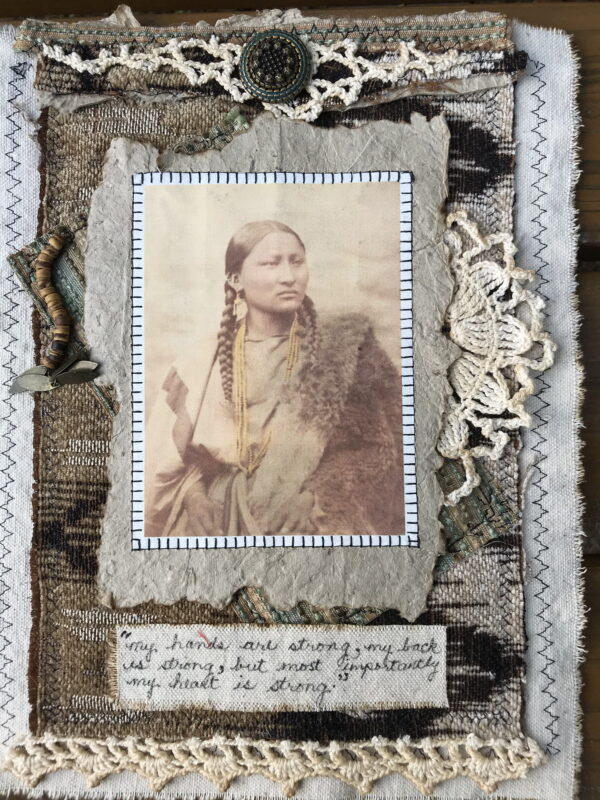 "my hands are strong, my back
is strong, but most importantly
my heart is strong."